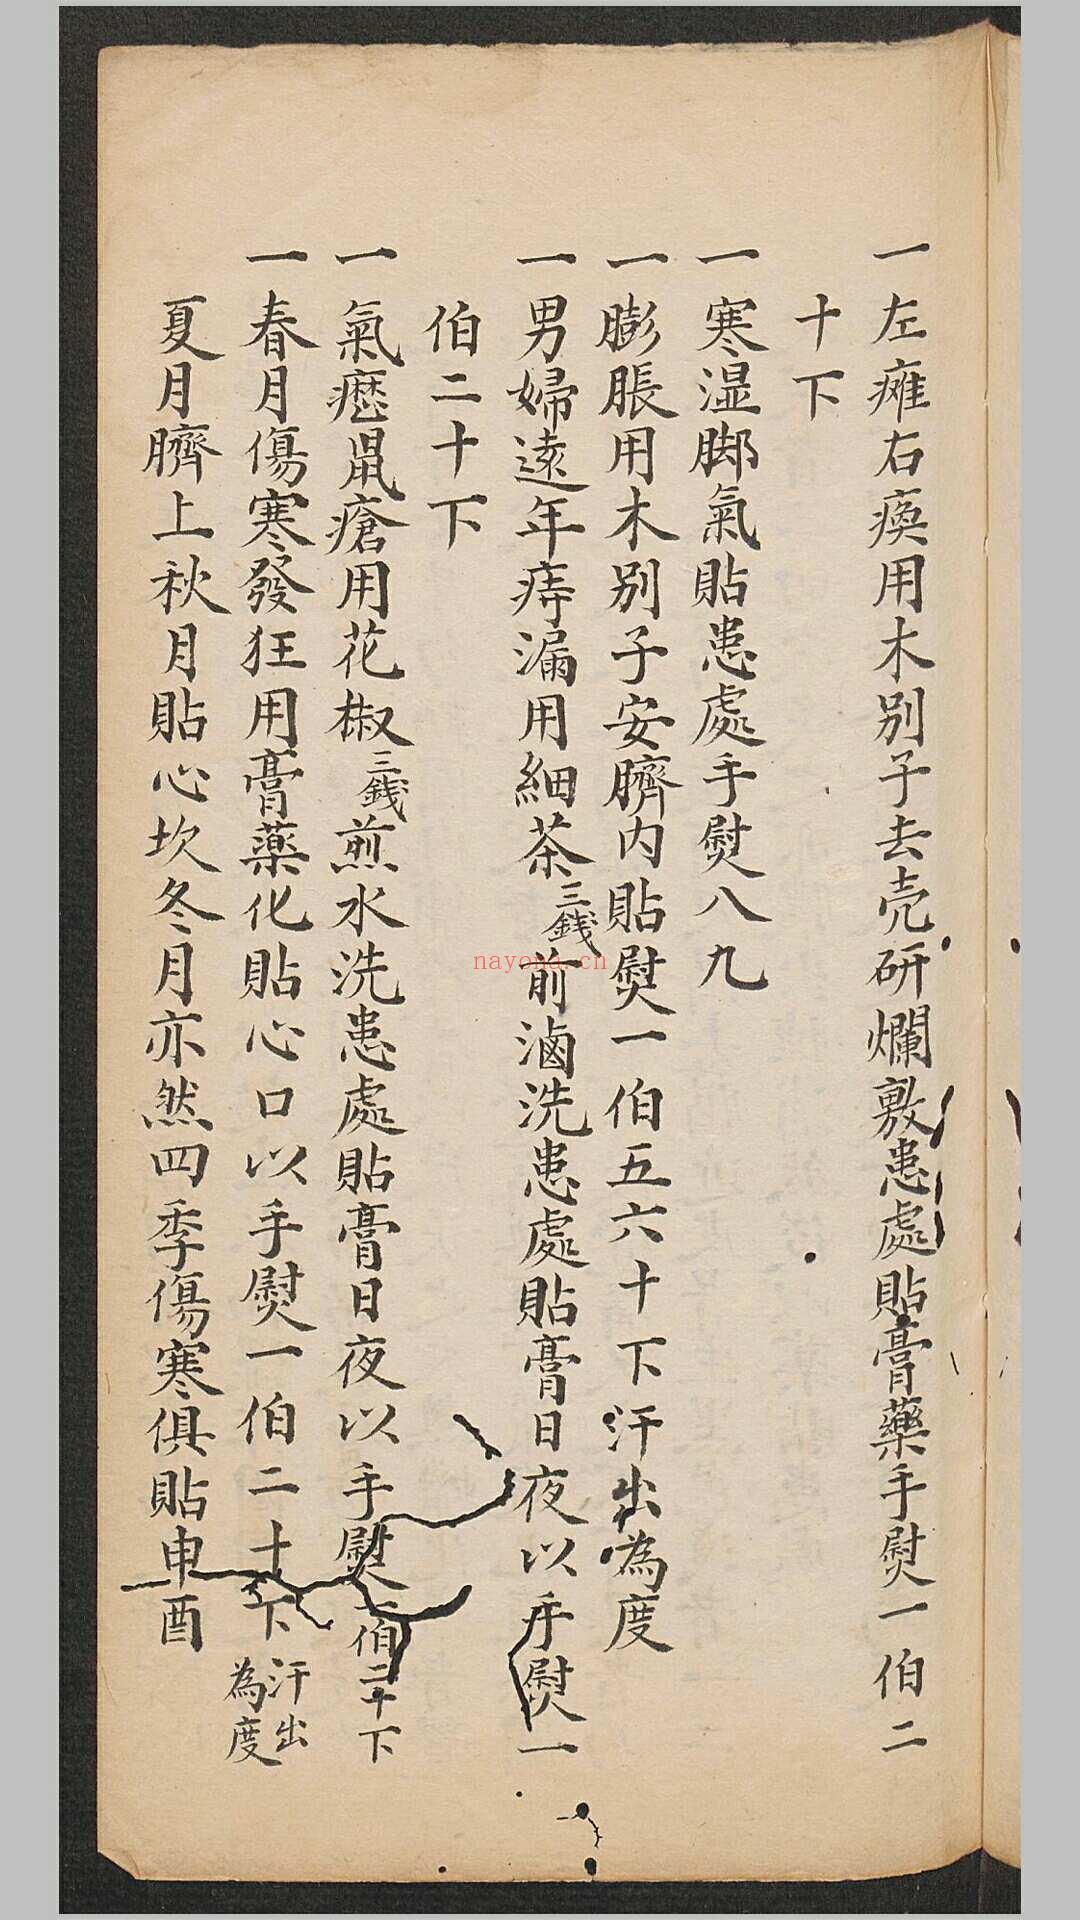 一左癱右瘓用木别子去壳研爛敷患處貼膏藥手熨一伯二
十下
一寒湿脚氣貼患處手熨八九
一膨脹用木别子安臍内貼熨一伯五六十下汗出為度
一男婦遠年痔漏用細茶三錢前滷洗患處貼膏日夜以手熨一
伯二十下
一氣癧鼠瘡用花椒三錢煎水洗患處貼膏日夜以手熨一伯二十下
一春月傷寒發狂用膏藥化貼心口以手熨一伯二十下汗出為度
夏月臍上秋月貼心坎冬月亦然四季傷寒俱貼申酉
nayona.cn